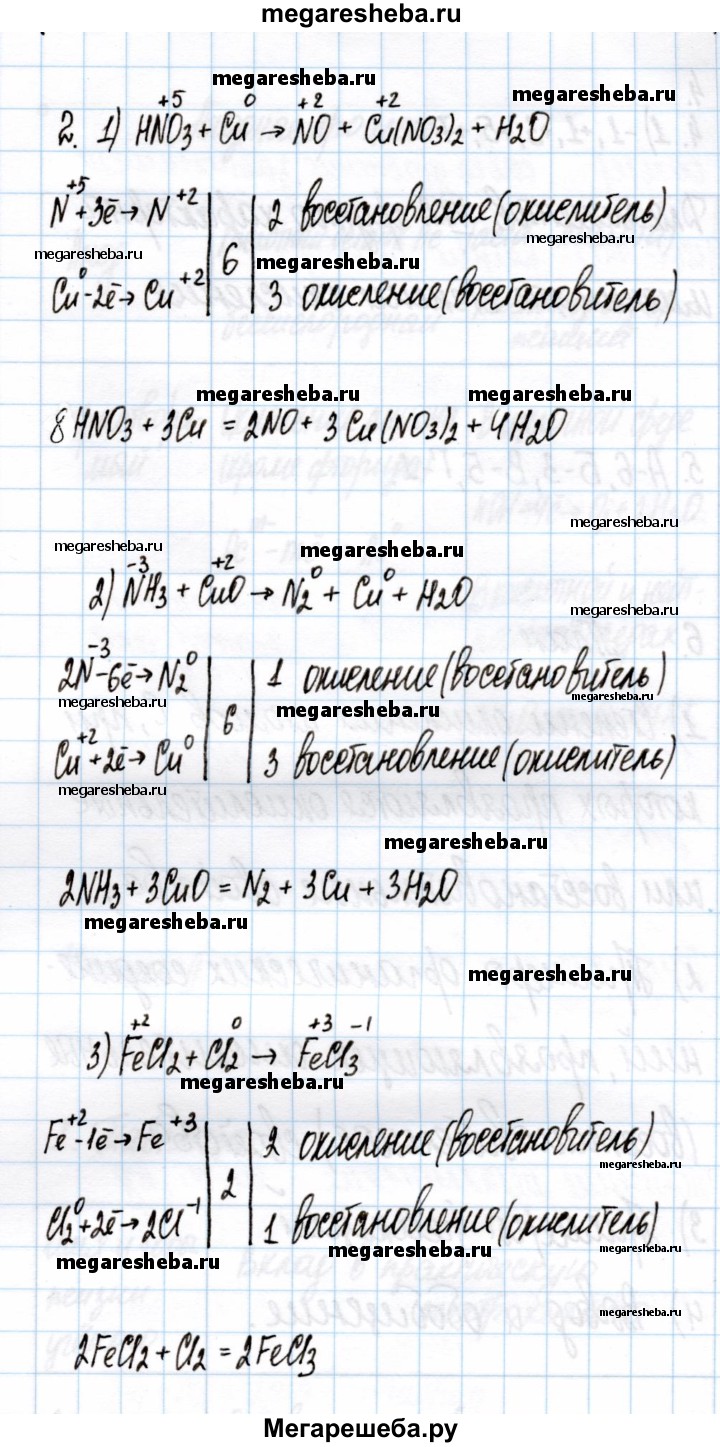 megaresheba.ru
megaresheba.ru
megaresheba.ru
+5 0 +2 +2
2. 1) HNO3 + Cu → NO + Cu(NO3)2 + H2O
N+5 +3ē → N+2 | 6 | 2 восстановление (окислитель)
megaresheba.ru
megaresheba.ru
megaresheba.ru
Cu0 -2ē → Cu+2 | 3 окисление (восстановитель)
megaresheba.ru
megaresheba.ru
8HNO3 + 3Cu = 2NO + 3Cu(NO3)2 + 4H2O
megaresheba.ru
megaresheba.ru
megaresheba.ru
-3 +2
2) NH3 + CuO → N2 0 + Cu0 + H2O
megaresheba.ru
2N-3 -6ē → N2 0 | 6 | 1 окисление (восстановитель)
megaresheba.ru
megaresheba.ru
megaresheba.ru
Cu+2 +2ē → Cu0 | 3 восстановление (окислитель)
megaresheba.ru
megaresheba.ru
2NH3 + 3CuO = N2 + 3Cu + 3H2O
megaresheba.ru
megaresheba.ru
+2 0 +3 -1
3) FeCl2 + Cl2 → FeCl3
megaresheba.ru
Fe+2 -1ē → Fe+3 | 2 | 2 окисление (восстановитель)
megaresheba.ru
Cl2 0 +2ē → 2Cl-1 | 1 восстановление (окислитель)
megaresheba.ru
megaresheba.ru
megaresheba.ru
megaresheba.ru
2FeCl2 + Cl2 = 2FeCl3
Мегарешеба.ру